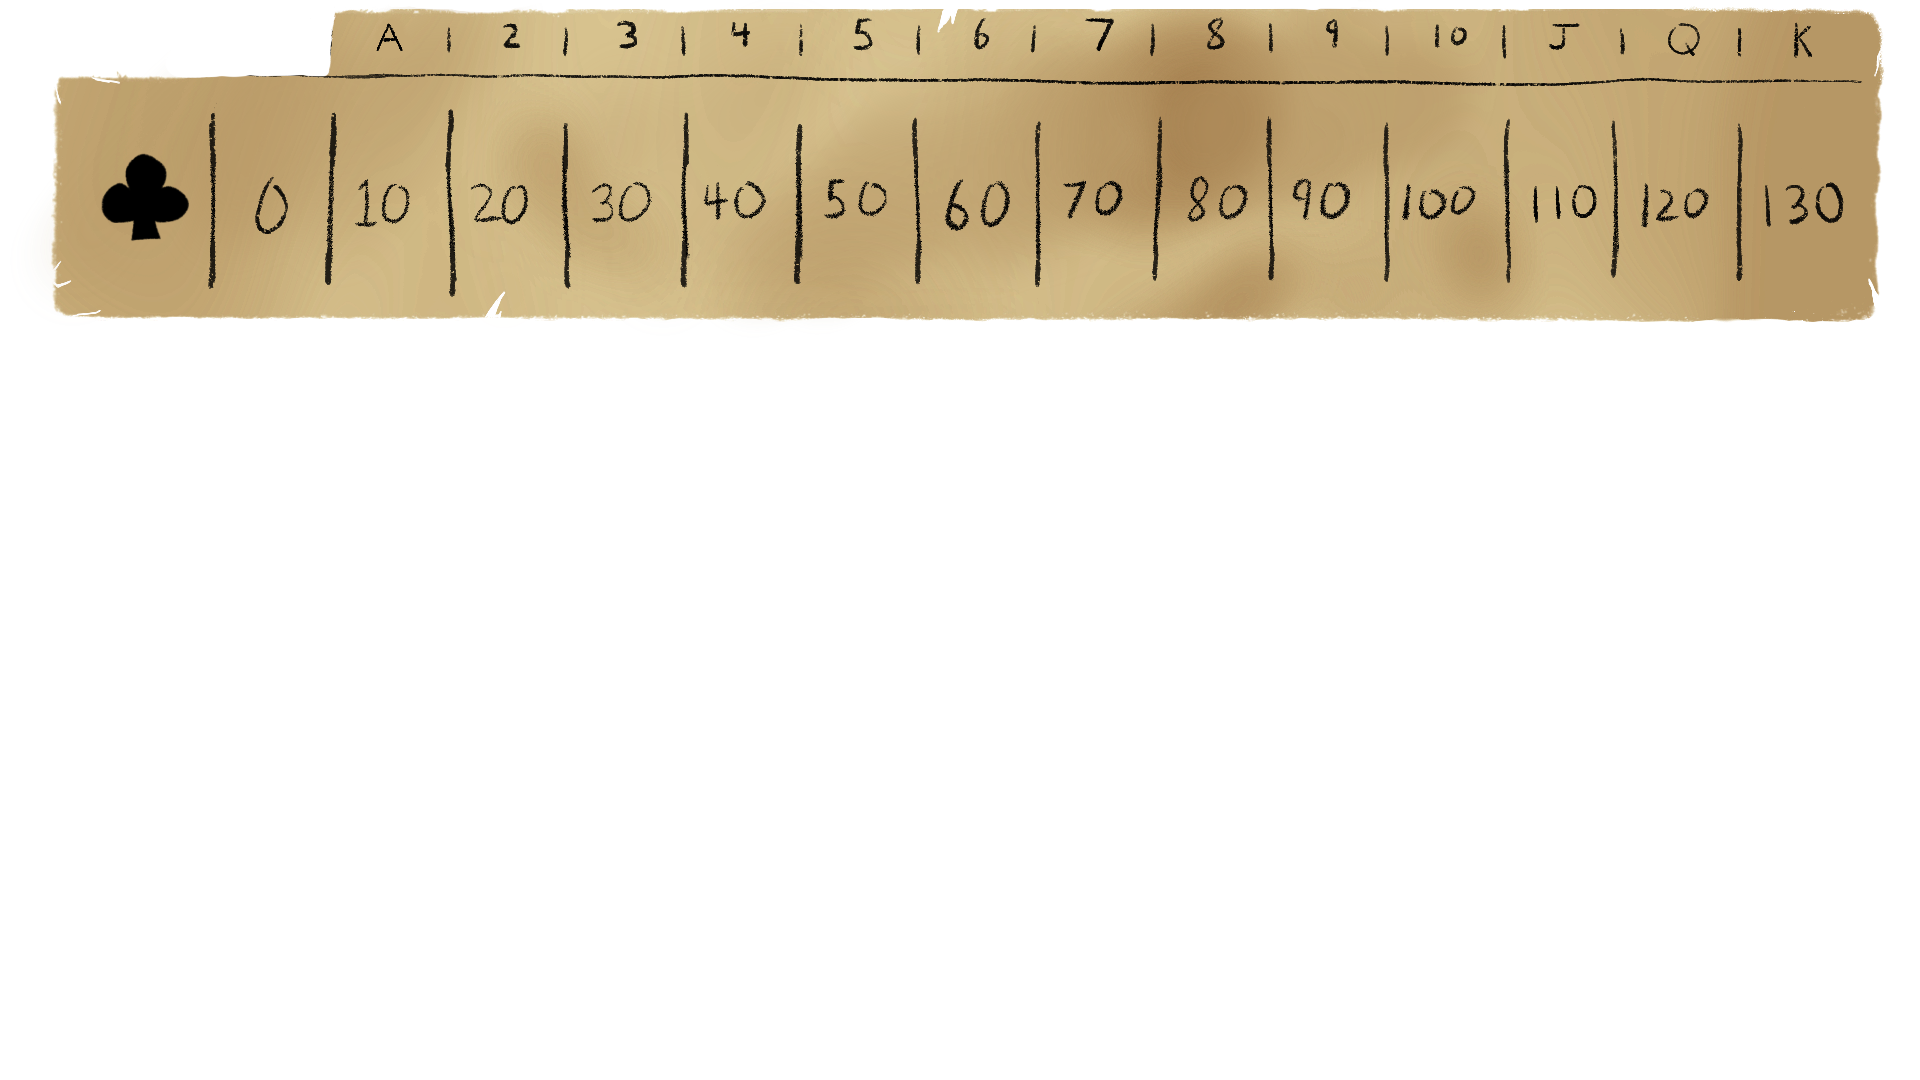 A | 2 | 3 | 4 | 5 | 6 | 7 | 8 | 9 | 10 | J | Q | K
♣ | 0 | 10 | 20 | 30 | 40 | 50 | 60 | 70 | 80 | 90 | 100 | 110 | 120 | 130